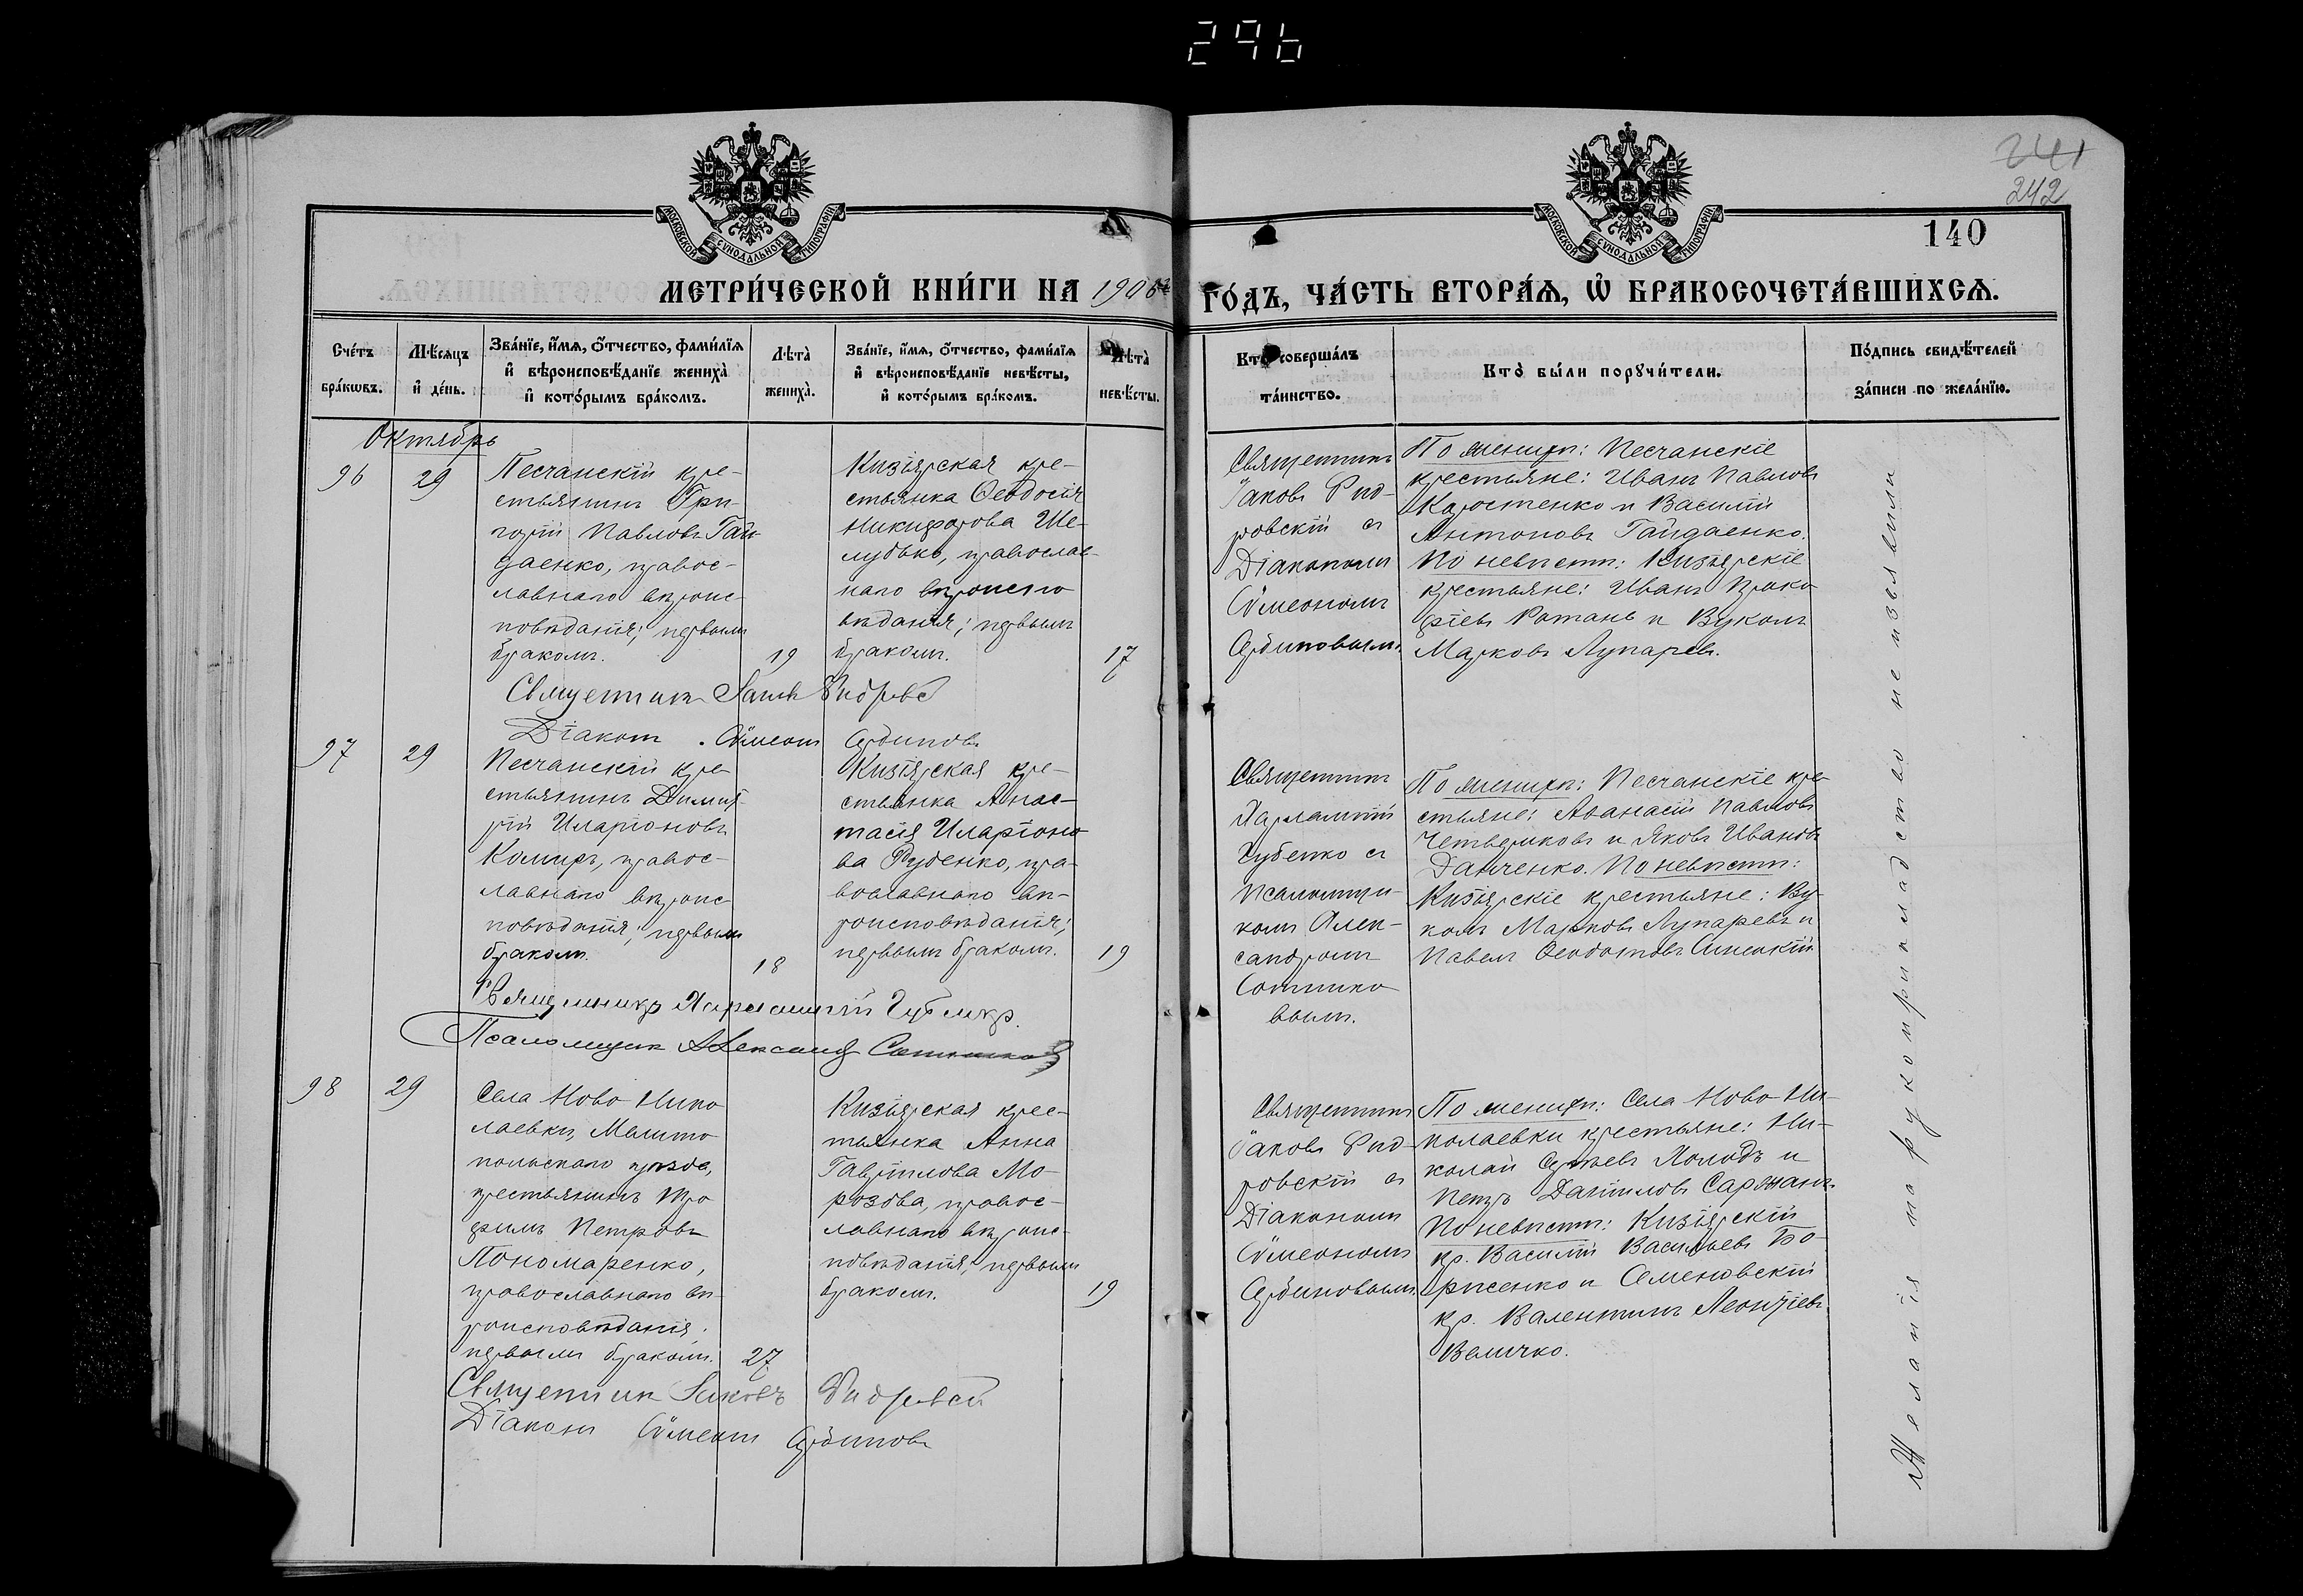 296
241
242
140
МОСКОВСКОЙ СѴНОДАЛЬНОЙ ТИПОГРАФІИ
МОСКОВСКОЙ СѴНОДАЛЬНОЙ ТИПОГРАФІИ
МЕТРИ́ЧЕСКОЙ КНИ́ГИ НА 1906й ГО́ДЪ, ЧА́СТЬ ВТОРА́Ѧ, Ѡ҆ БРАКОСОЧЕТА́ВШИХСѦ.
Сче́тъ
бра́кѡвъ.
Мѣ́сѧцъ
и҆ де́нь.
Зва́нїе, и҆́мѧ, ѻ҆́тчество, фами́лїѧ
и҆ вѣроисповѣ́данїе жениха̀
и҆ кото́рымъ бра́комъ.
Лѣта̀
жениха̀.
Зва́нїе, и҆́мѧ, ѻ҆́тчество, фами́лїѧ
и҆ вѣроисповѣ́данїе невѣ́сты,
и҆ кото́рымъ бра́комъ.
Лѣта̀
невѣ́сты.
Кто̀ соверша́лъ
та́инство.
Кто̀ бы́ли порꙋчи́тели.
По́дпись свидѣ́телей
за́писи по жела́нїю.
Октябрь
96
29
Песчанскій кре-
стьянинъ Гри-
горій Павловъ Гай-
даенко, правос-
лавнаго вѣроис-
повѣданія; первымъ
бракомъ.
19
Кизіярская кре-
стьянка Ѳеодосія
Никифорова Ше-
лудько, православ-
наго вѣроиспо
вѣданія; первымъ
бракомъ.
17
Священникъ
Іаковъ
ровскій съ
Діакономъ
Сѵмеономъ
По женихѣ: Песчанскіе
крестьяне: Иванъ Павловъ
Коростенко и Василій
Антоновъ Гайдаенко.
По невѣстѣ: Кизіярскіе
крестьяне: Иванъ Проко
фіевъ Ротань и Вуколъ
Марковъ Лупаревъ.
Священникъ Іаковъ
Діаконъ Сѵмеонъ
97
29
Песчанскій кре-
стьянинъ Димит-
рій Иларіоновъ
Комиръ, правос-
лавнаго вѣроис-
повѣданія; первымъ
бракомъ.
18
Кизіярская кре-
стьянка Анас-
тасія Иларіоно
ва Руденко, пра-
вославнаго вѣ-
роисповѣданія;
первымъ бракомъ.
19
Священникъ
Харлампій
Губенко съ
псаломщи-
комъ Алек-
сандромъ
Сотнико
вымъ.
По женихѣ: Песчанскіе кре-
стьяне: Аѳанасій Павловъ
Четвериковъ и Яковъ Ивановъ
Данченко. По невѣстѣ:
Кизіярскіе крестьяне: Ву-
колъ Марковъ Лупаревъ и
Павелъ Ѳеодотовъ
Священникъ Харлампій Губенко.
Псаломщик Александръ Сотников
98
29
Села Ново Нико
лаевки, Мелито
польскаго уѣзда,
крестьянинъ Тро
фимъ Петровъ
Пономаренко,
православнаго вѣ-
роисповѣданія;
первымъ бракомъ.
27
Кизіярская крес-
тьянка Анна
Гавріилова Мо-
розова, правос-
лавнаго вѣроис-
повѣданія; первымъ
бракомъ.
19
Священникъ
Іаковъ
ровскій съ
Діакономъ
Сѵмеономъ
По женихѣ: Села Ново Ни-
колаевки крестьяне: Ни-
колай Сергѣевъ Холодъ и
Петръ Даніиловъ Саржанъ.
По невѣстѣ: Кизіярскій
кр. Василій Васильевъ Бо-
рисенко и Семеновскій
кр. Валентинъ Леонтіевъ
Величко.
Священник Іаковъ
Діаконъ Сѵмеонъ
Желанія на рукоприкладство не изъявили